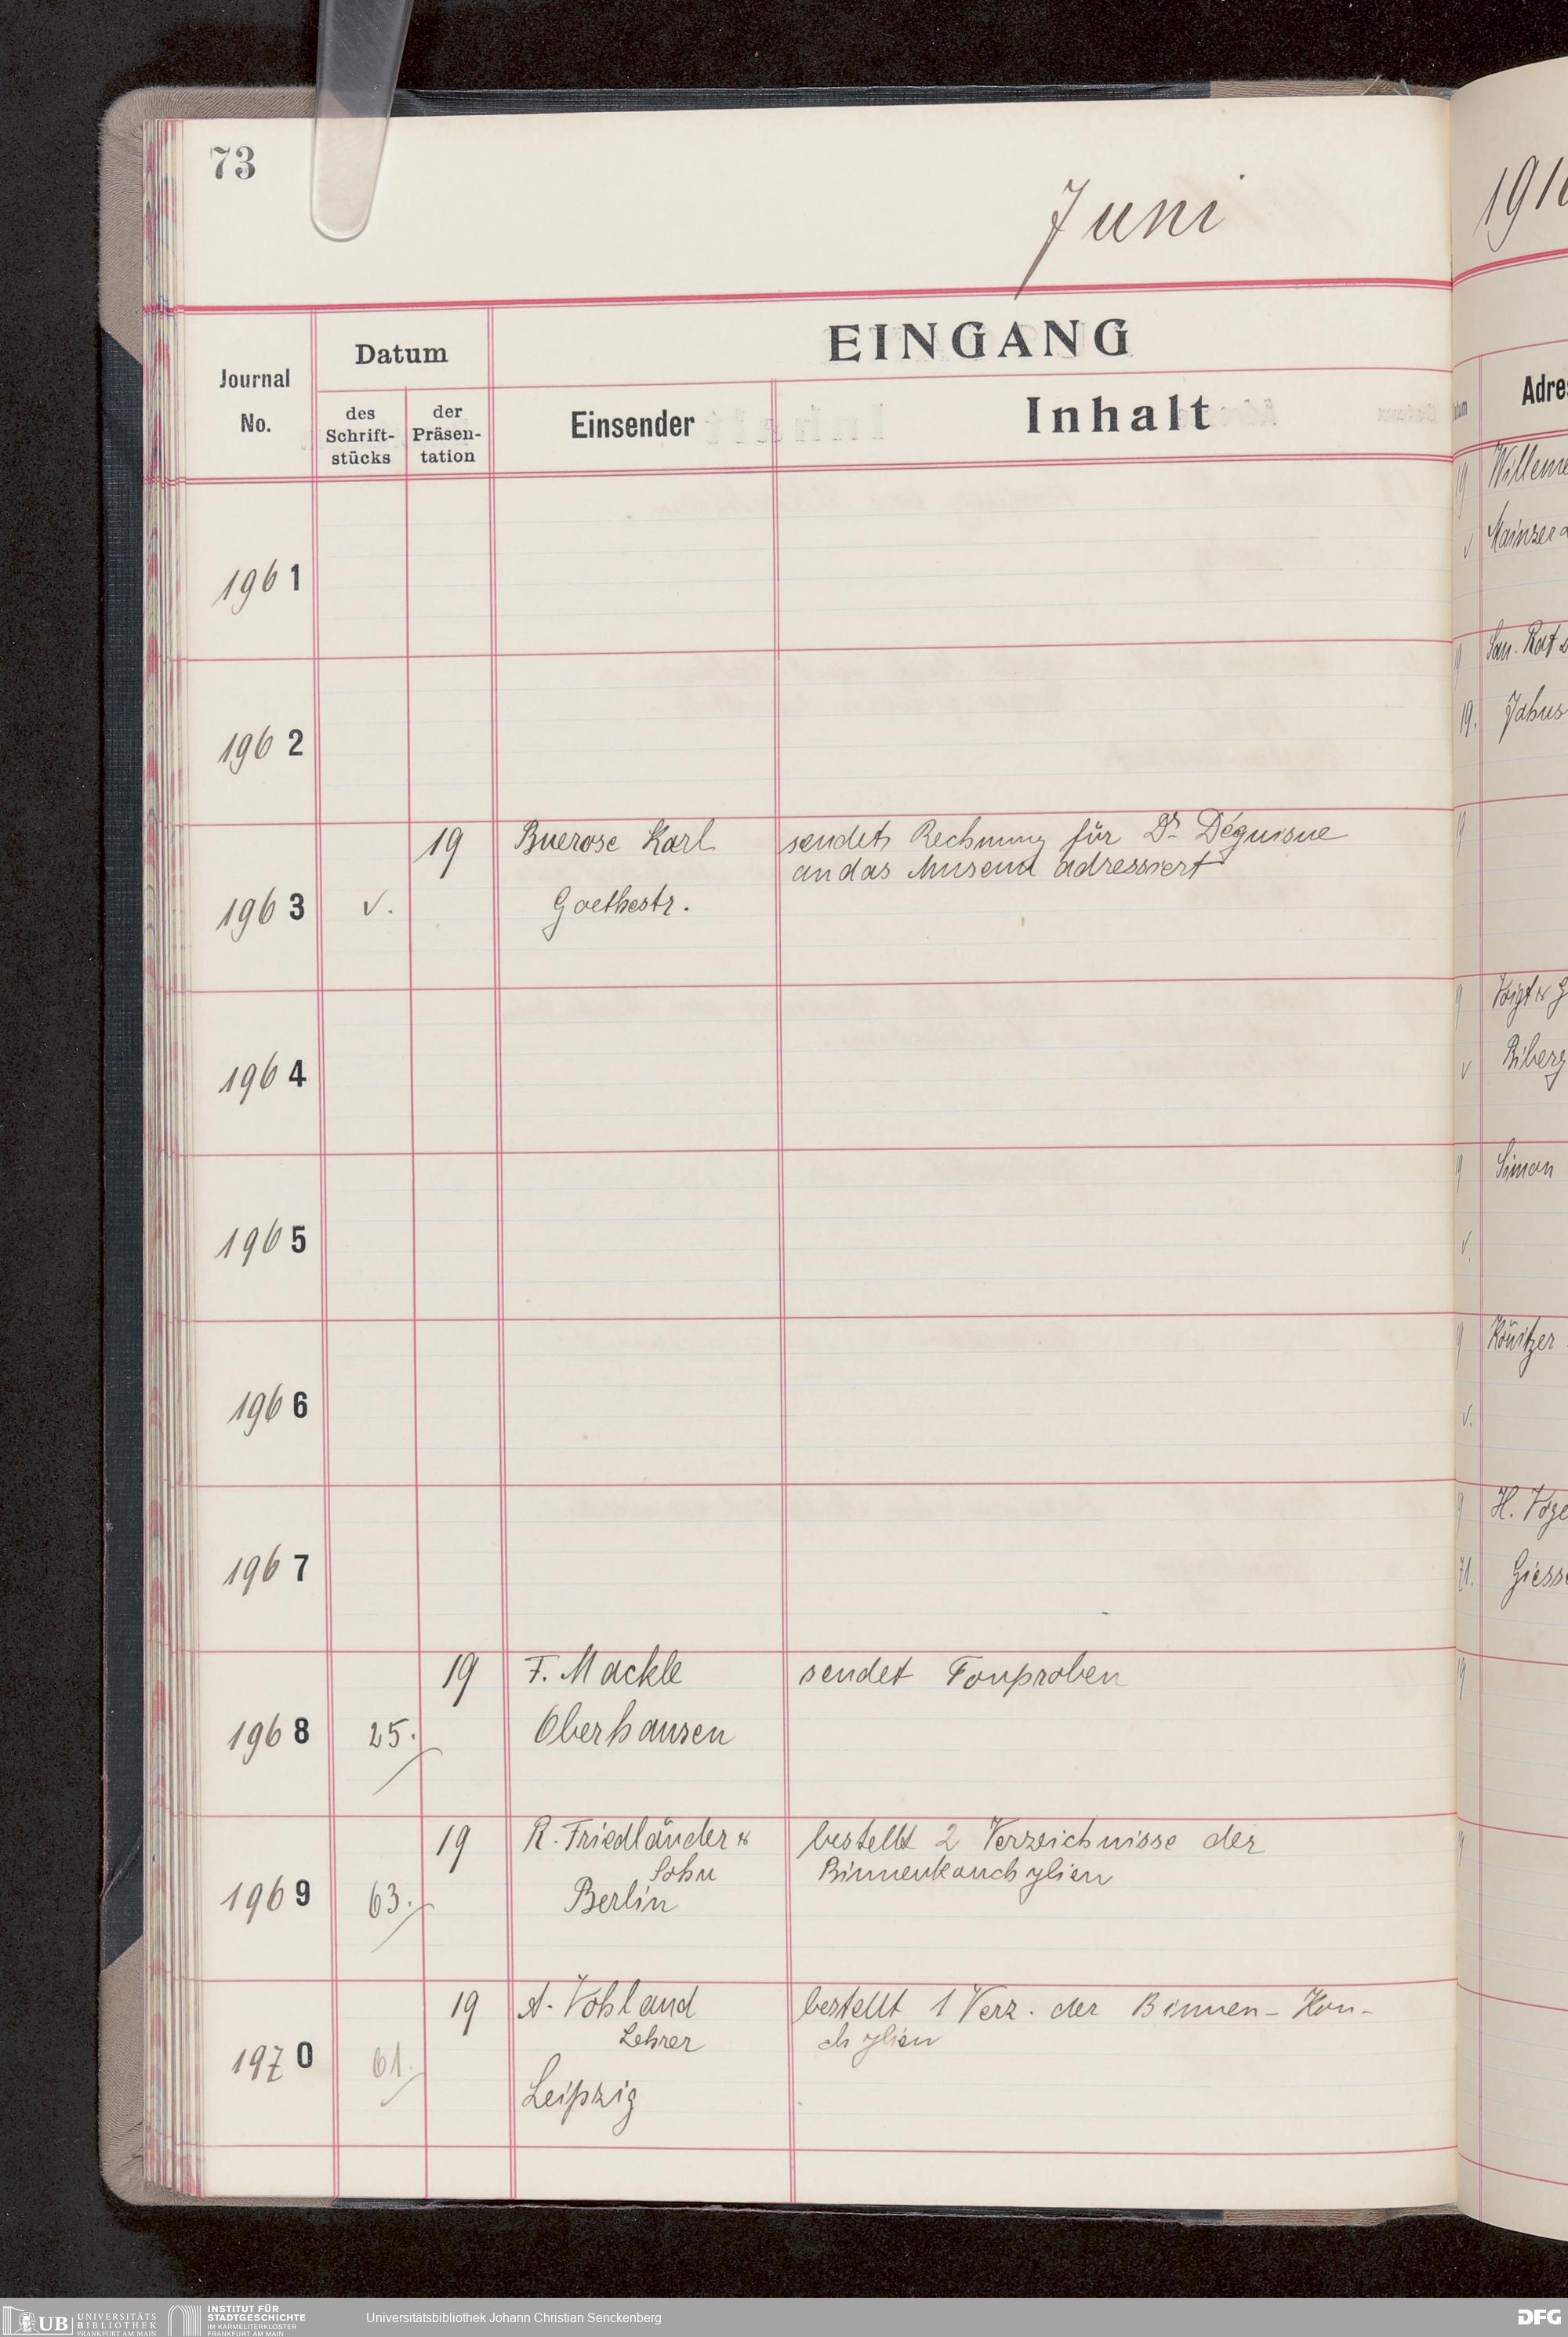 73
Juni
191
EINGANG
Journal
No.
Datum
des
Schrift-
stücks
der
Präsen-
tation
Einsender
Inhalt
Adre
1961
1962
1963
v.
19
Buerose Karl
Goethestr.
sendet Rechnung für Dr Déguisne
an das Museum adressiert
1964
1965
1966
1967
1968
25.
19
F. Mackle
Oberhausen
sendet Tonproben
1969
63.
19
R. Friedländer &
Sohn
Berlin
bestellt 2 Verzeichnisse der
Binnenkonchylien
1970
61.
19
A. Vohland
Lehrer
Leipzig
bestellt 1 Verz. der Binnen-Kon-
chylien
19
Willem
v
Mainzer
San. Rat
19.
Jahus
Voigt & G
v
Biberg
Simon
v.
Könitzer
v.
H. Voge
71.
Giess
UB UNIVERSITÄTS
BIBLIOTHEK
FRANKFURT AM MAIN
INSTITUT FÜR
STADTGESCHICHTE
IM KARMELITERKLOSTER
FRANKFURT AM MAIN
Universitätsbibliothek Johann Christian Senckenberg
DFG